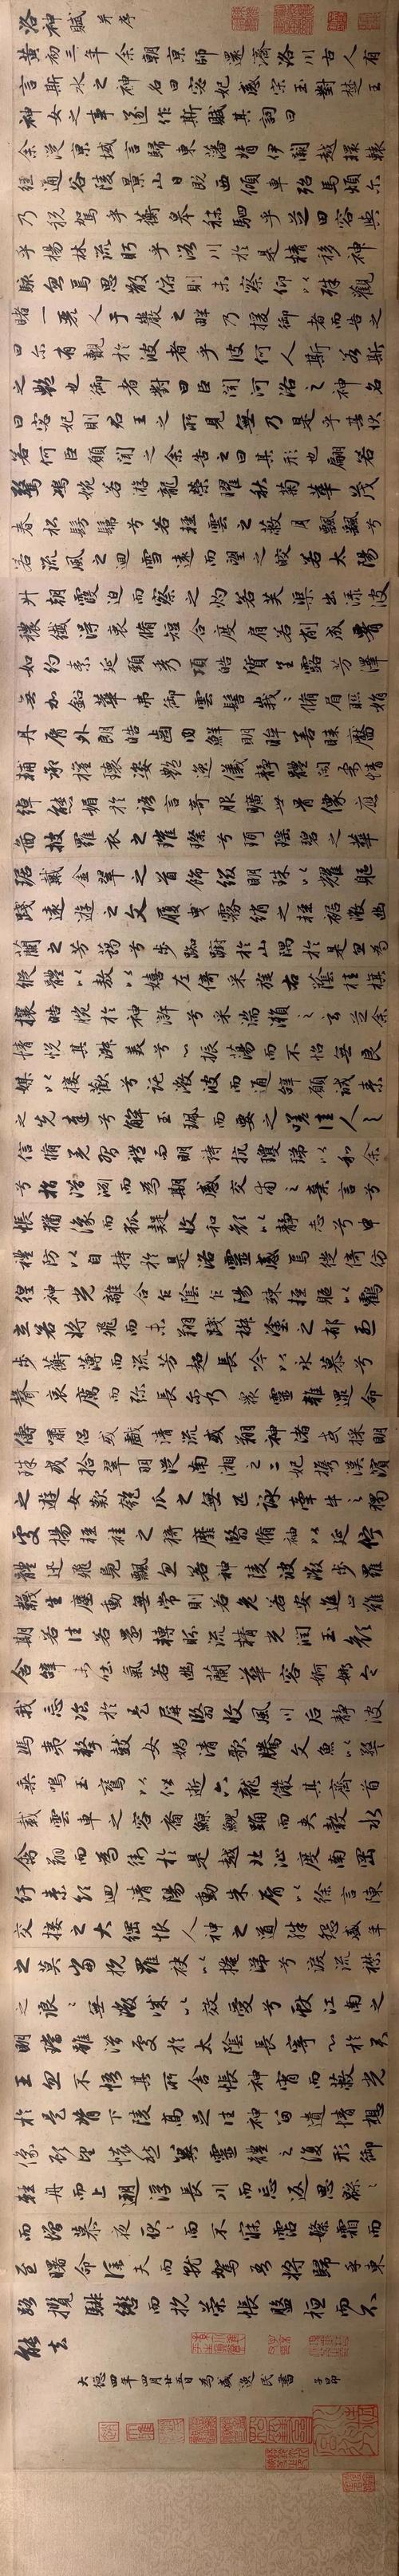 洛神賦 并序
黃初三年余朝京師還濟洛川古人有
言斯水之神名曰宓妃感宋玉對楚王
神女之事遂作斯賦其詞曰
余從京域言歸東藩背伊闕越轘轅
經通谷陵景山日既西傾車殆馬煩尔
乃税駕乎蘅皋秣駟乎芝田容與
乎楊林流眄乎洛川於是精移神
駭忽焉思散俯則未察仰以殊觀
睹一麗人于巖之畔乃援御者而告之
曰尔有覿於彼者乎彼何人斯若斯
之艷也御者對曰臣聞河洛之神名
曰宓妃則君王之所見無乃是乎其狀
若何臣願聞之余告之曰其形也翩若
驚鴻婉若游龍榮曜秋菊華茂
春松髣髴兮若輕雲之蔽月飄飄兮
若流風之迴雪遠而望之皎若太陽
升朝霞迫而察之灼若芙蕖出淥波
穠纖得衷脩短合度肩若削成䙅
如約素延頸秀項皓質呈露芳澤
無加鉛華弗御雲髻峩〻脩眉聯娟
丹脣外朗皓齒内鮮明眸善睞靨
輔承權瓌姿艷逸儀靜體閑柔情
綽態媚於語言奇服曠世骨像應
圖披羅衣之璀璨兮珥瑶碧之華
琚戴金翠之首飾綴明珠以耀軀
踐遠遊之文履曳霧綃之輕裾微幽
蘭之芳藹兮步踟躕於山隅於是忽焉
縱體以敖以嬉左倚采旄右蔭桂旗
攘皓腕於神滸兮采湍瀬之玄芝余
情悦其淑美兮心振蕩而不怡無良
媒以接歡兮託微波而通辭願誠素
之先達兮解玉珮而要之嗟佳人之
信脩羌習禮而明詩抗瓊珶以和余
兮指潛淵而為期感交甫之棄言兮
悵猶豫而狐疑收和顔以靜志兮申
禮防以自持於是洛靈感焉徙倚彷
徨神光離合乍陰乍陽竦輕軀以鶴
立若將飛而未翔踐椒塗之郁烈
步蘅薄而流芳超長吟以永慕兮
聲哀厲而弥長尔乃衆靈雜遝命
儔嘯侣或戲清流或翔神渚或採明
珠或拾翠羽從南湘之二妃攜漢濱
之遊女歎匏瓜之無匹詠牽牛之獨
處揚輕袿之猗靡翳脩袖以延佇
體迅飛鳧飄忽若神陵波微步羅
韈生塵動無常則若危若安進止難
期若往若還轉眄流精光潤玉顔
含辭未吐氣若幽蘭華容婀娜令
我忘飡於是屏翳收風川后靜波
馮夷擊鼓女媧清歌騰文魚以警
乘鳴玉鸞以偕逝六龍儼其齊首
載雲車之容裔鯨鯢踊而夾轂水
禽翔而為衛於是越北沚度南岡
紆素領迴清陽動朱脣以徐言陳
交接之大綱恨人神之道殊怨盛年
之莫當抗羅袂以掩涕兮淚流襟
之浪〻無微情以效愛兮獻江南之
明璫雖潛處於太陰長寄心於君
王忽不悟其所舍悵神宵而蔽光
於是背下陵高足往神留遺情想
像顧望懷愁冀靈體之復形御
輕舟而上遡浮長川而忘返思緜〻
而增慕夜耿〻而不寐霑繁霜而
至曙命僕夫而就駕吾將歸乎東
路攬騑轡而抗策悵盤桓而不
能去
大德四年四月廿五日為盛逸民書 子昂